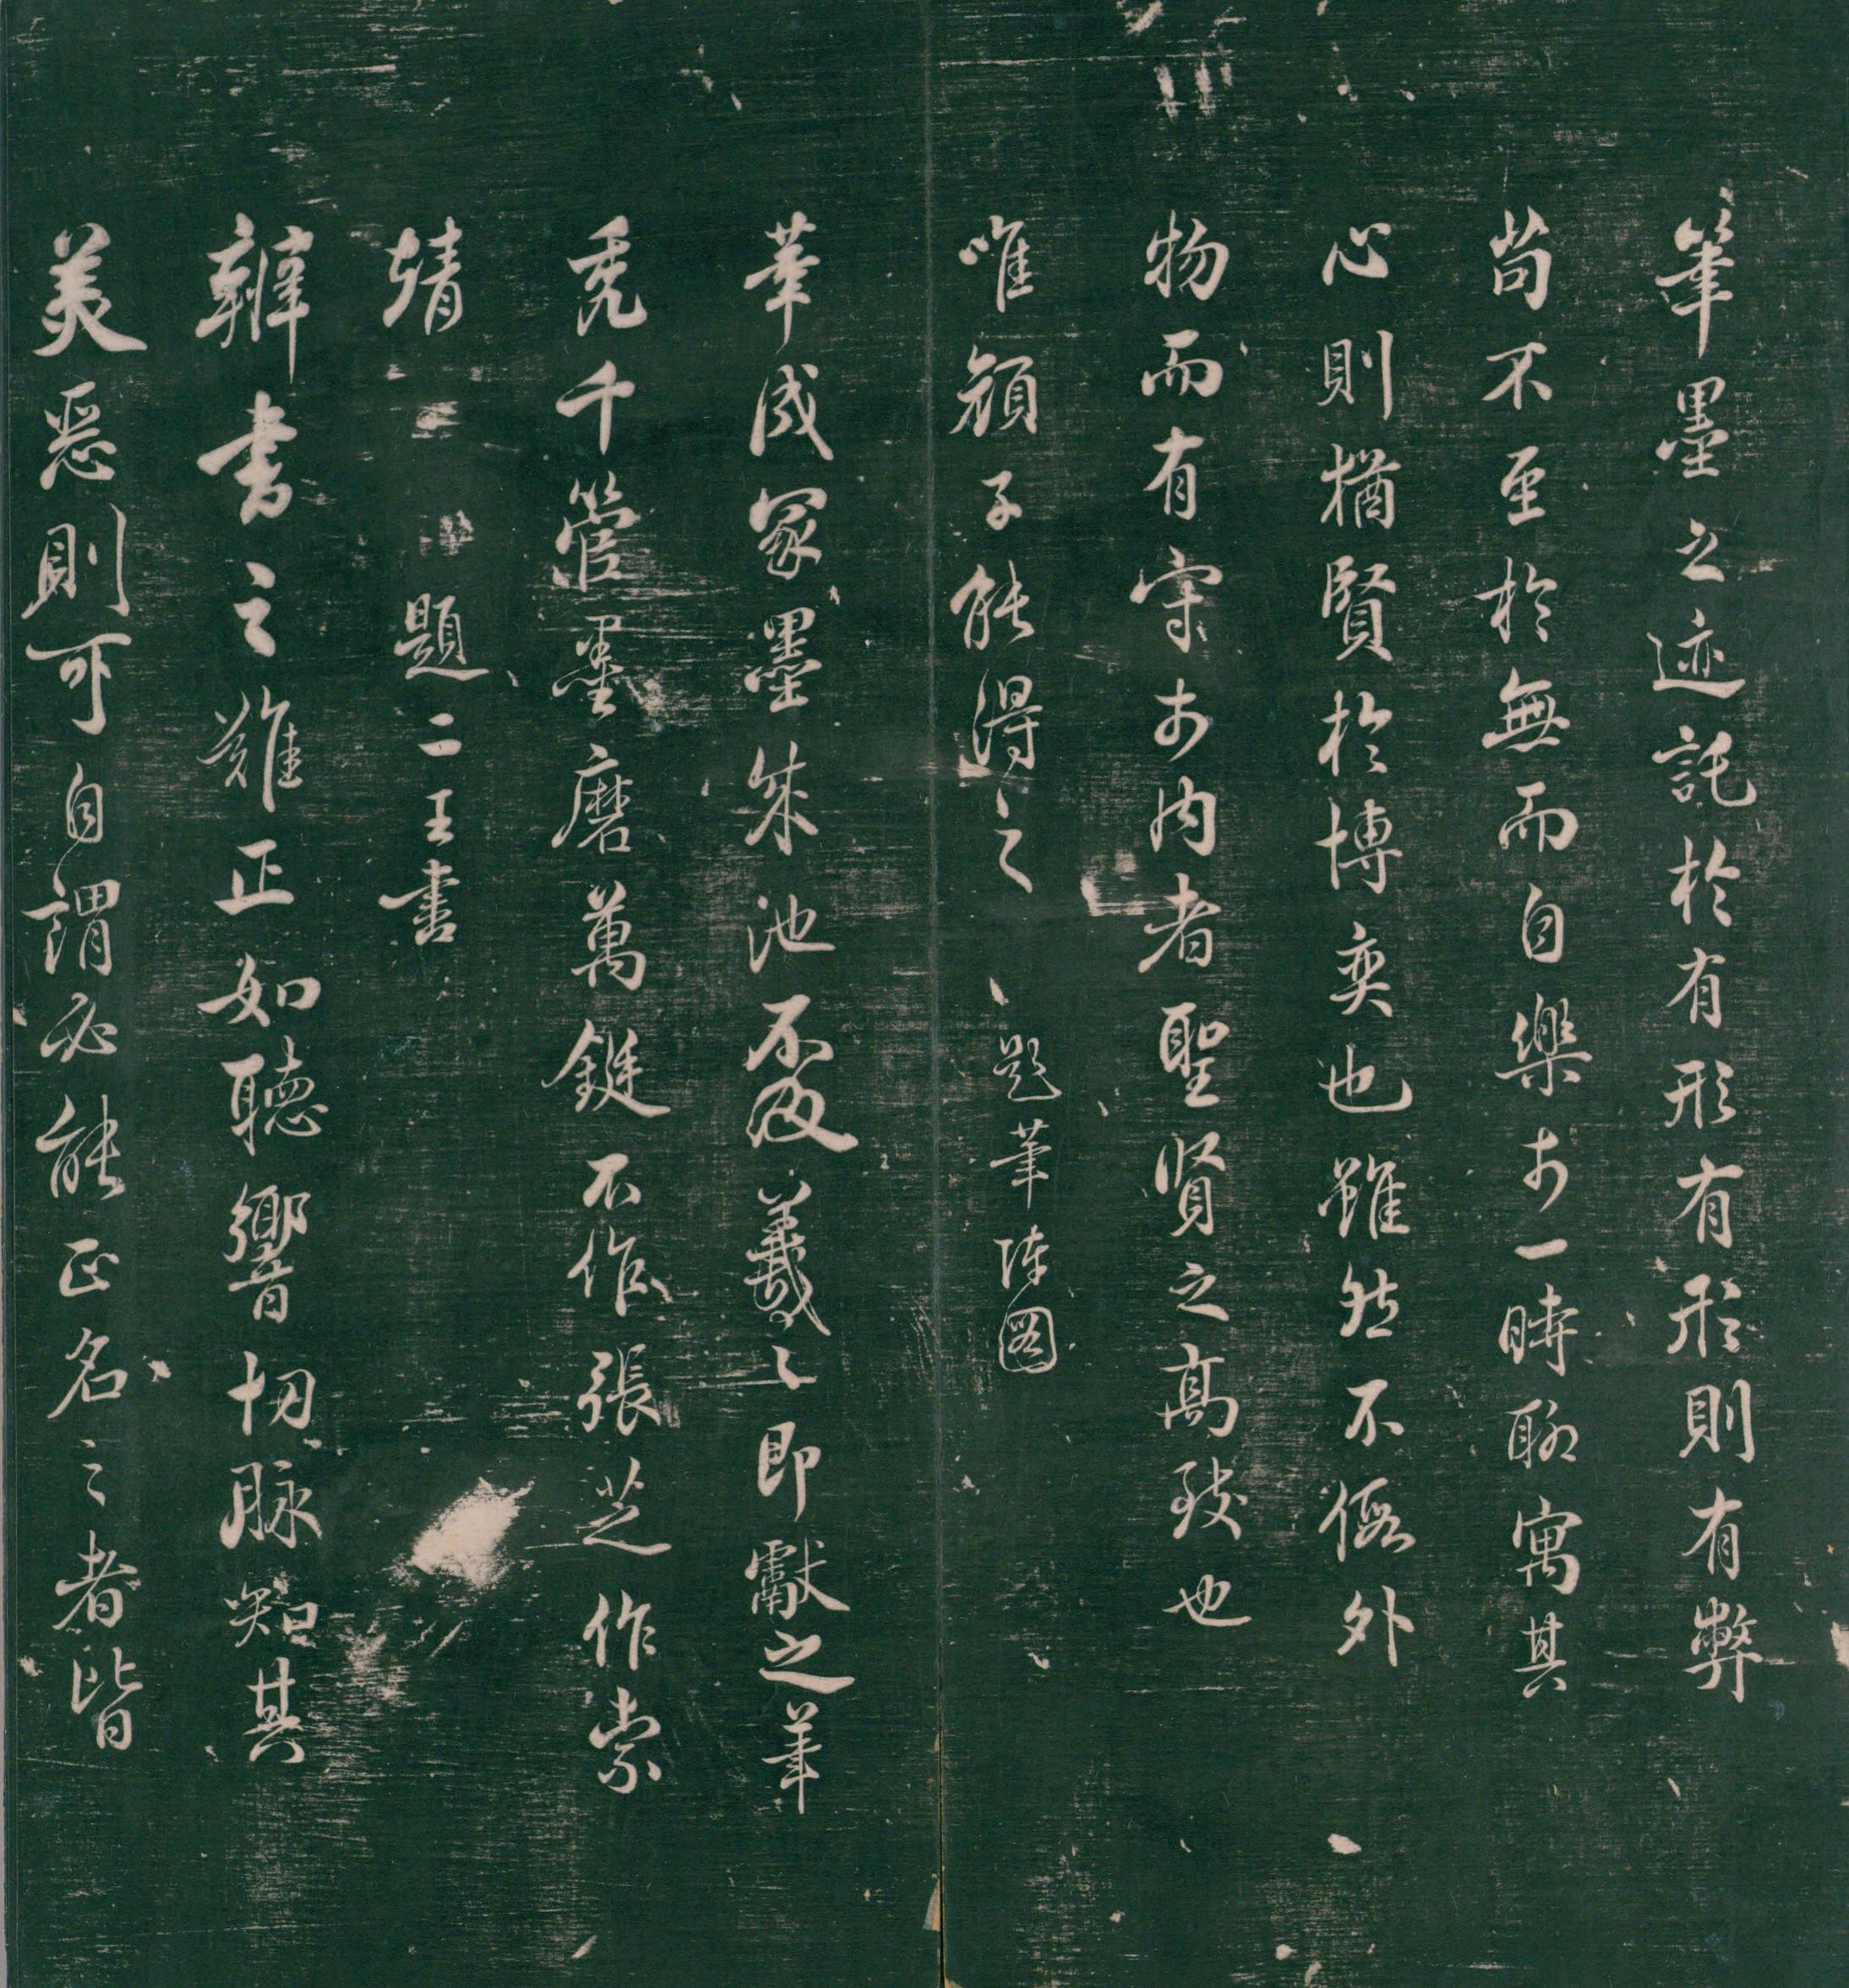 筆墨之迹託於有形有形則有弊
苟不至於無而自樂於一時聊寓其
心則猶賢於博奕也雖然不假外
物而有守於內者聖賢之高致也
唯顏子能得之 題筆陣圖
筆成冢墨成池不及羲之即獻之筆
禿千管墨磨萬鋌不作張芝作索
靖 題二王書
辨書之難正如聽響切脉知其
美惡則可自謂必能正名之者皆